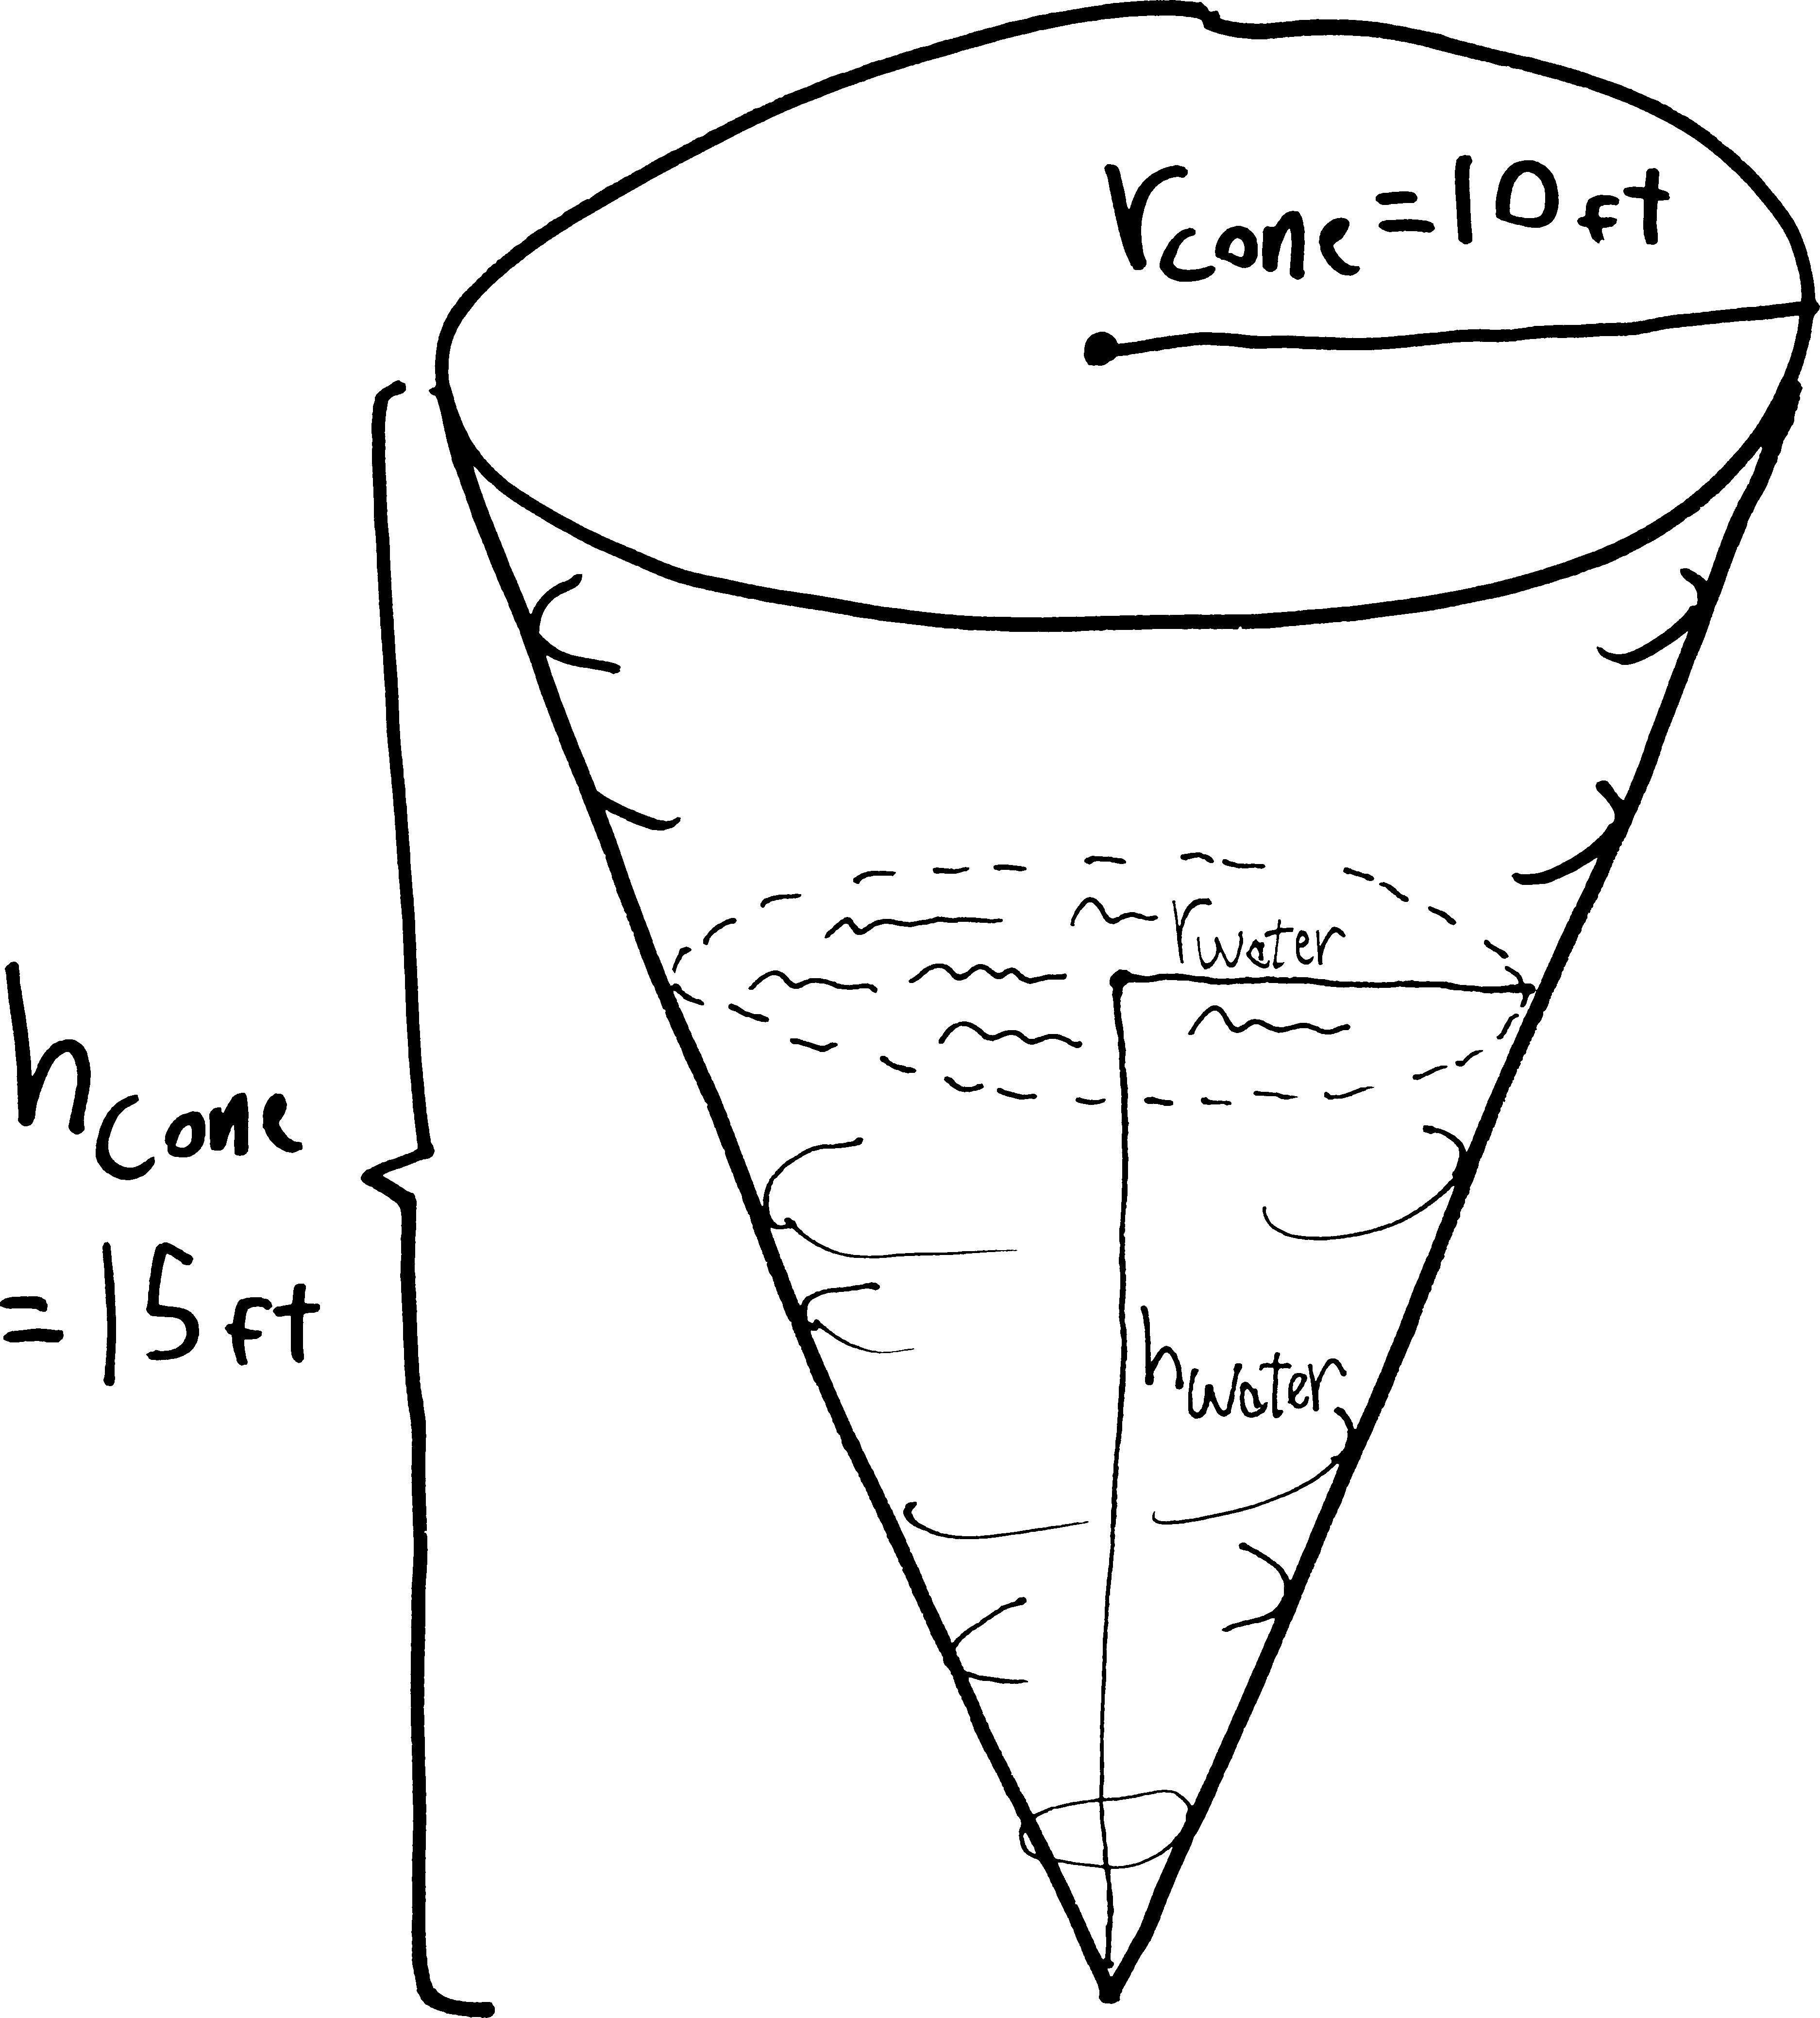 rcone = 10 ft
rwater
hcone
= 15 ft
hwater